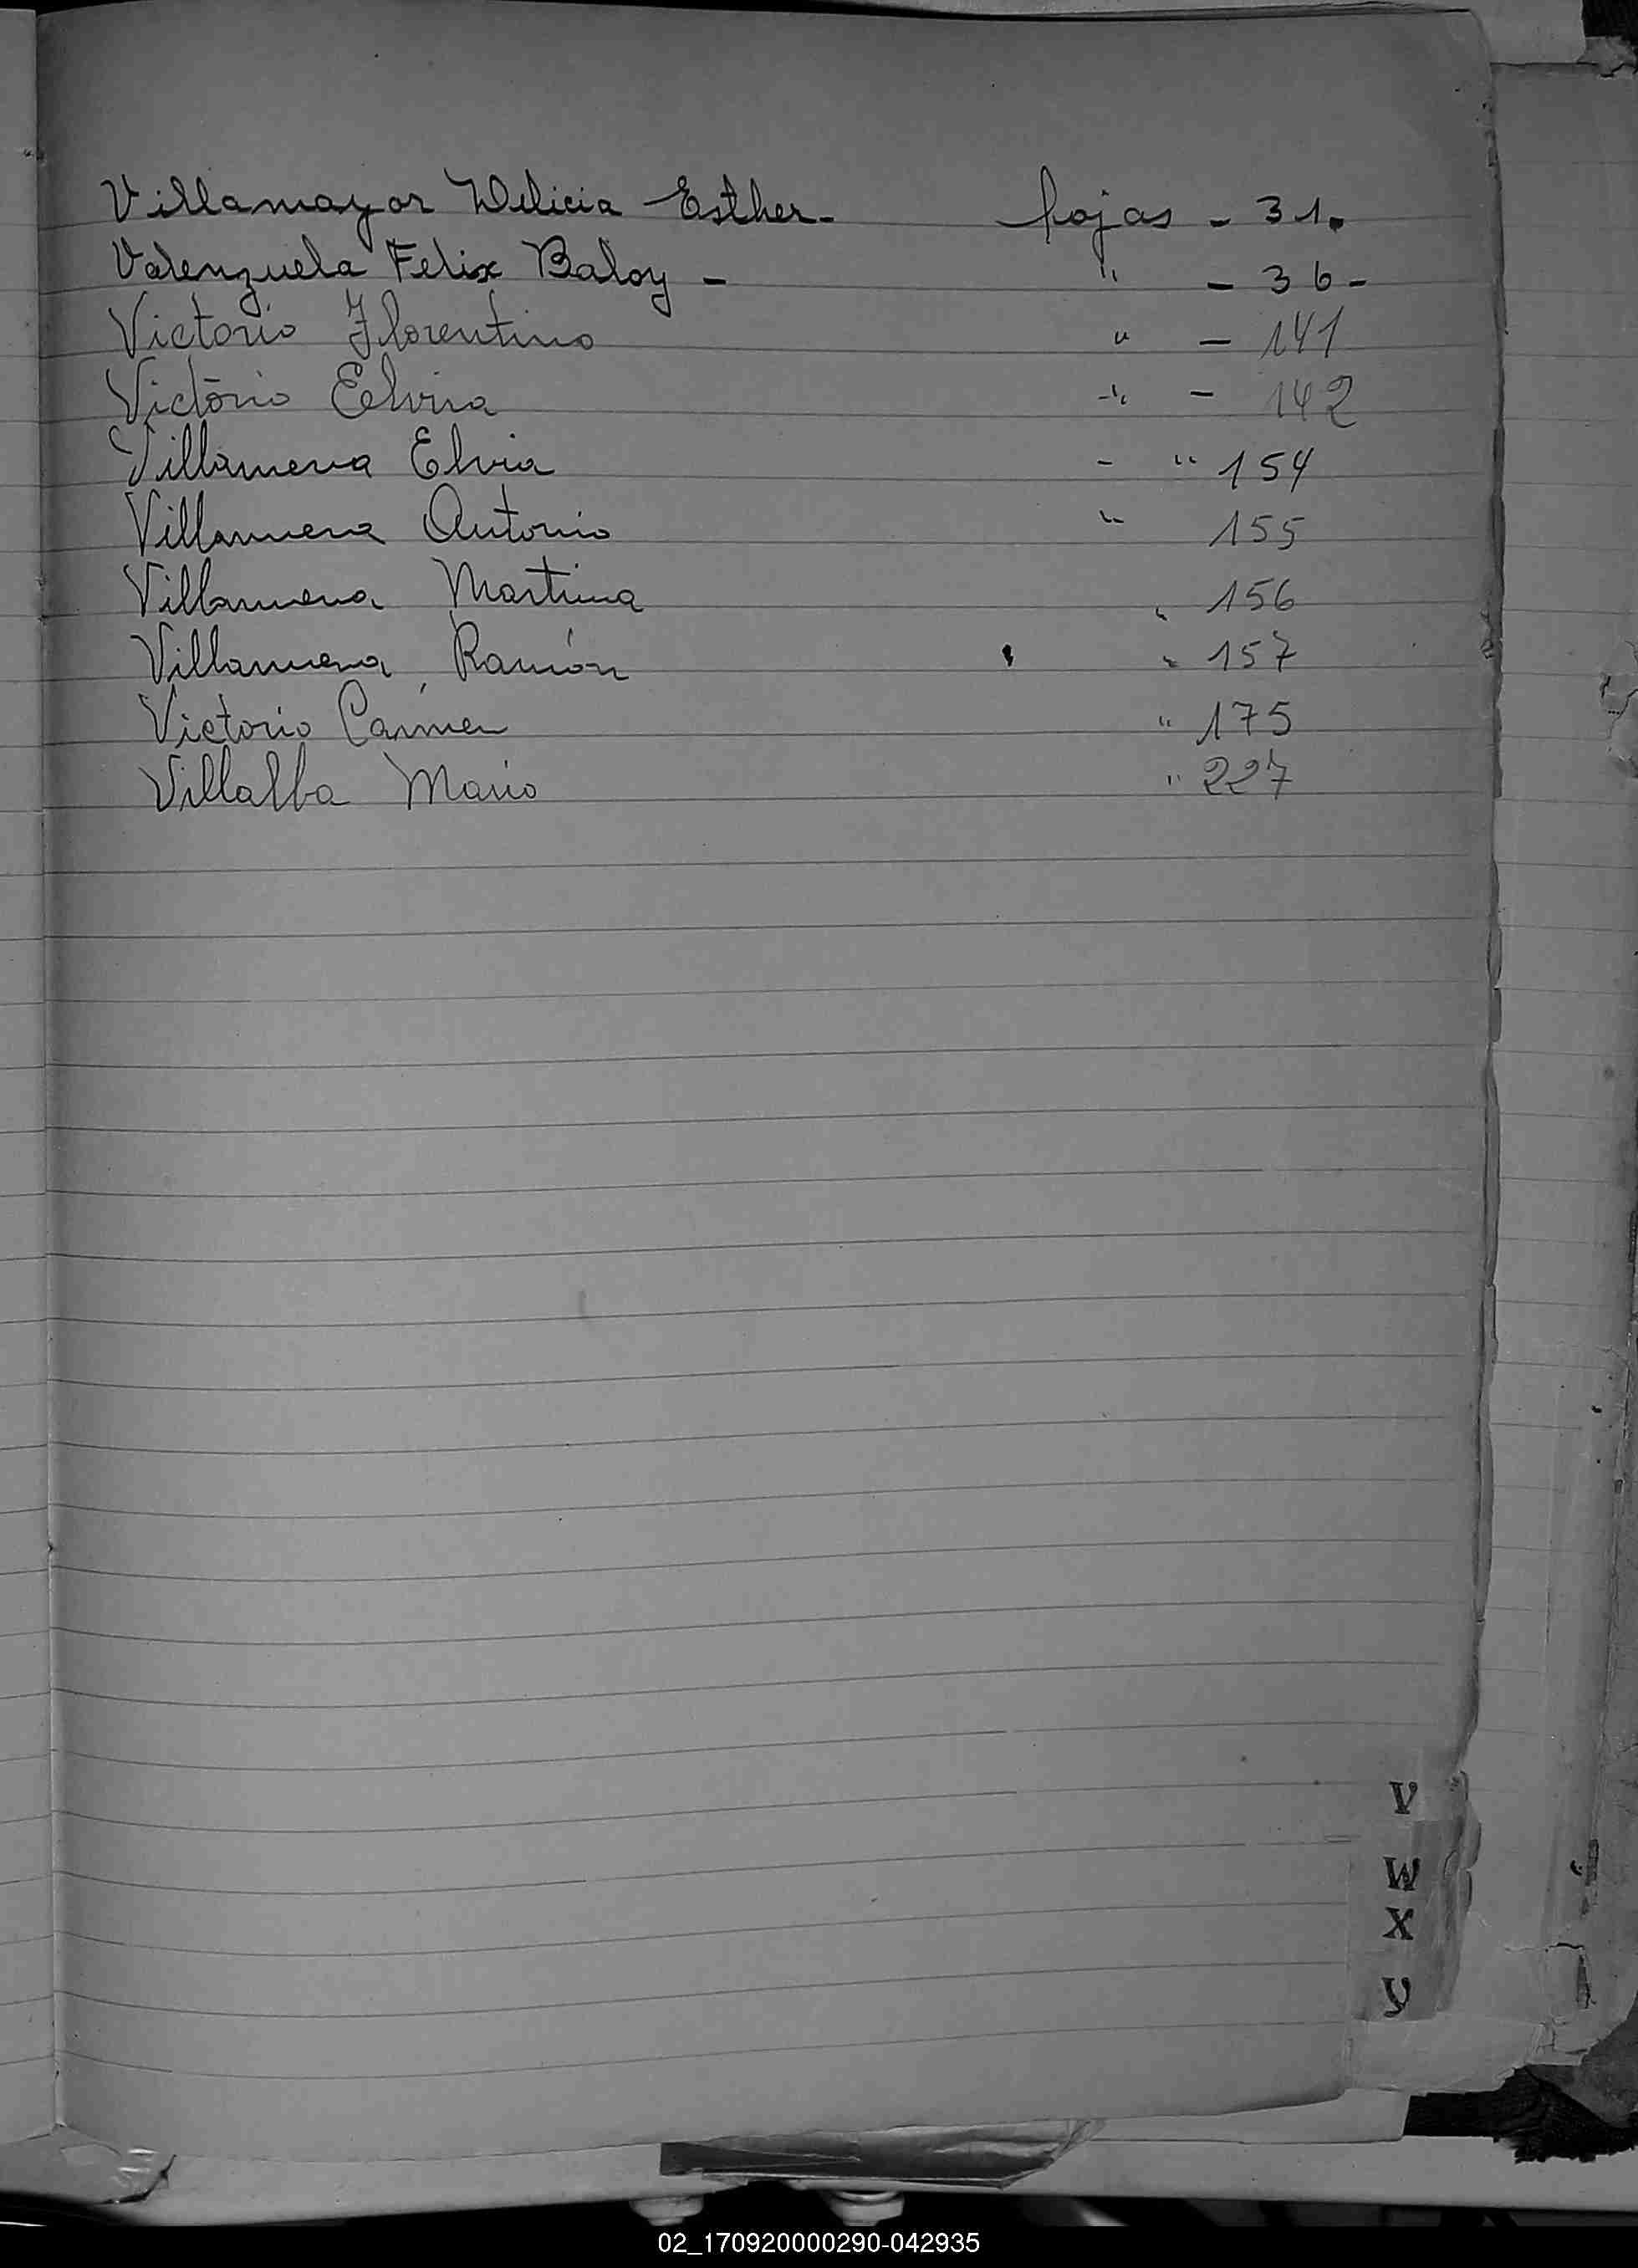 Villamayor Delicia Esther- fojas - 31.
Valenzuela Felix Baloy - " - 36-
Victorio Florentino " - 141
Victorio Elvira -" - 142
Villanueva Elvia - " 154
Villanueva Antonio " 155
Villanueva Martina " 156
Villanueva, Ramón " 157
Victorio Carmen " 175
Villalba Mario " 227
V
W
X
Y
02_170920000290-042935